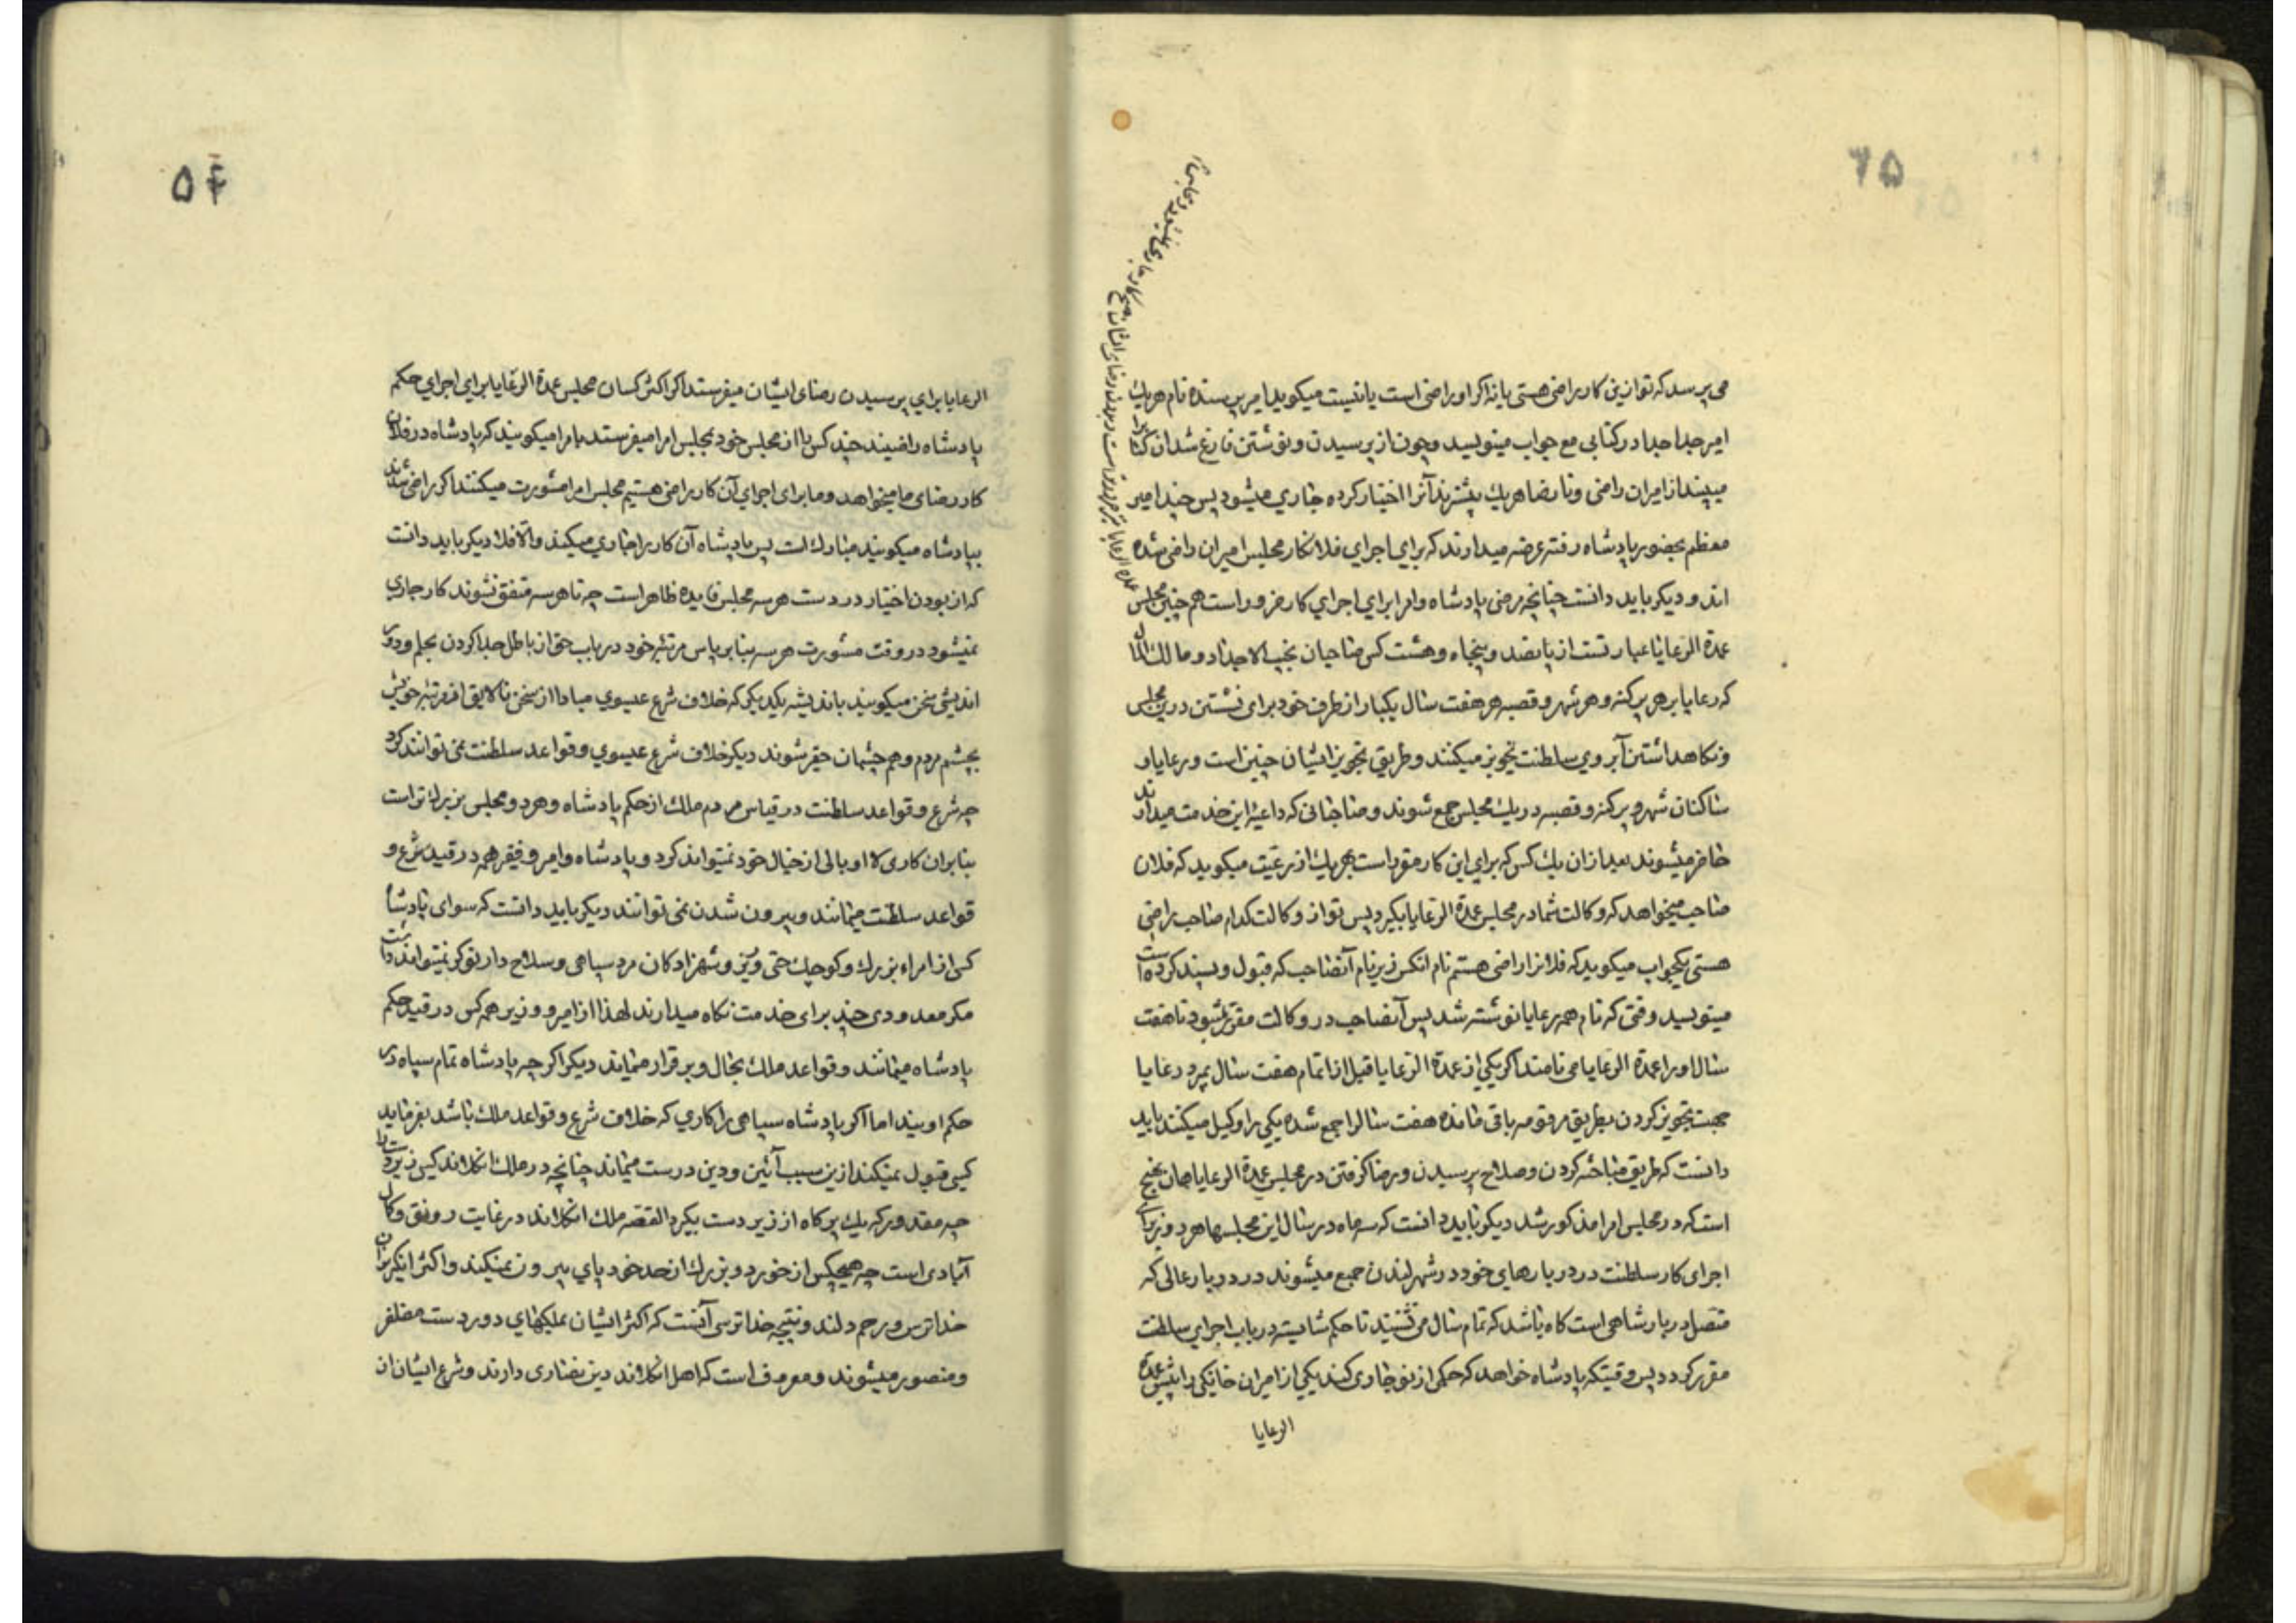 ۶۵
می پرسد که تو ازین کار راضی هستی یا نه اگر او راضی است یا نیست میکوید امیر پرسنده نام هریک
امیر جدا جدا در کتابی مع جواب مینویسد و چون از پرسیدن و نوشتن فارغ شدان
میبیند از امیران راضی و نا رضا هریک بیشترند آنرا اختیار کرده جاری میشود پس چند امیر
معظم بحضور پادشاه رفته عرضه میدارند که برای اجرای فلانکار مجلس امیران راضی شده
اند و دیکر باید دانست چنانچه مرضی پادشاه و امرا برای اجرای کار ضرور است هم چنین مجلس
عمدة الرعایا عبارتست از پانصد و پنجاه و هشت کس صاحبان نجیب الاجداد و مالک
که رعایا هر پرکنه و هر شهر و قصبه هر هفت سال یکبار از طرف خود برای نشستن درین مجلس
و نکاهداشتن آبروی سلطنت تجویز میکنند و طریق تجویز ایشان چنین است و رعایا و
ساکنان شهر و پرکنه و قصبه در یک مجلس جمع شوند و صاحبانی که داعیه این خدمت میدارند
حاضر میشوند بعد ازان یک کس که برای این کار مقرر است بهریک از رعیت میکوید که فلان
صاحب میخواهد که وکالت شما در مجلس عمدة الرعایا بکیرد پس تو از وکالت کدام صاحب راضی
هستی یکجواب میکوید که فلانرا راضی هستم نام انکس زیر نام آنصاحب که قبول و پسند کرده است
مینویسد وقتی که نام همه رعایا نوشته شد پس آنصاحب در وکالت مقرر میشود تا هفت
سال او را عمدة الرعایا می نامند اکر یکی از عمدة الرعایا قبل از اتمام هفت سال بمیرد رعایا
بجهت تجویز کردن بطریق مرقومه باقی مانده هفت سال را جمع شده یکی را وکیل میکنند باید
دانست که طریق مباحثه کردن و صلاح پرسیدن و رضا کرفتن در مجلس عمدة الرعایا همان نهج
است که در مجلس امرا مذکور شد دیکر باید دانست که سه ماه در سال این مجلسها هر روز برای
اجرای کار سلطنت در دربارهای خود در شهر لندن جمع میشوند در دربار عالی که
متصل دربار شاهی است کاه باشد که تمام سال می نشینند تا حکم شایسته در باب اجرای سلطنت
مقرر کردد پس وقتیکه پادشاه خواهد که حکمی از نو جاری کند یکی از امیران خانیکی را پیش عمدة
الرعایا
۵۴
الرعایا برای پرسیدن رضای ایشان میفرستد اکر اکثر کسان مجلس عمدة الرعایا برای اجرای حکم
پادشاه راضیند چند کس را از مجلس خود بمجلس امرا میفرستند بامرا میکویند که پادشاه در فلان
کار رضای ما میخواهد و ما برای اجرای آن کار راضی هستیم مجلس امرا مشورت میکنند اکر راضی شدند
بپادشاه میکویند مبارک است پس پادشاه آن کار را جاری میکند والا فلا دیکر باید دانست
که از بودن اختیار در دست هر سه مجلس فایده ظاهر است چه تا هر سه متفق نشوند کار جاری
نمیشود در وقت مشورت هر سه بنا بر پاس مرتبه خود در باب حق از باطل جدا کردن بحلم و دور
اندیشی سخن میکویند باندیشه یکدیکر که خلاف شرع عیسوی مبادا از سخن نالایق از مرتبه خویش
بچشم مردم و هم چشمان حقیر شوند دیکر خلاف شرع عیسوی و قواعد سلطنت نمی توانند کرد
چه شرع و قواعد سلطنت در قیاس مردم ملک از حکم پادشاه و هر دو مجلس بزرک تر است
بنابران کاری لا اوبالی از خیال خود نمیتواند کرد و پادشاه و امیر و فقیر همه در قید شرع و
قواعد سلطنت میمانند و بیرون شدن نمی توانند دیکر باید دانست که سوای پادشاه
کسی از امراء بزرک و کوچک حتی وزیر و شهزادکان مرد سپاهی و سلاح دار نوکر نمیتواند داشت
مکر معدودی چند برای خدمت نکاه میدارند لهذا از امیر و وزیر همه کس در قید حکم
پادشاه میباشند و قواعد ملک بحال و برقرار میماند دیکر اکر چه پادشاه تمام سپاه در
حکم اویند اما اکر پادشاه سپاهی را کاری که خلاف شرع و قواعد ملک باشد بفرماید
کسی قبول نمیکند ازین سبب آئین و دین درست میماند چنانچه در ملک انکلاند کسی زبردست را
چه مقدور که یک پر کاه از زیر دست بکیرد القصه ملک انکلاند در غایت رونق و کمال
آبادی است چه هیچکس از خورد و بزرک از حد خود پای بیرون نمیکند و اکثر انکریزان
خداترس و رحم دلند و نتیجه خدا ترسی آنست که اکثر ایشان بملکهای دور دست مظفر
و منصور میشوند و معروف است که اهل انکلاند دین نصاری دارند و شرع ایشان از